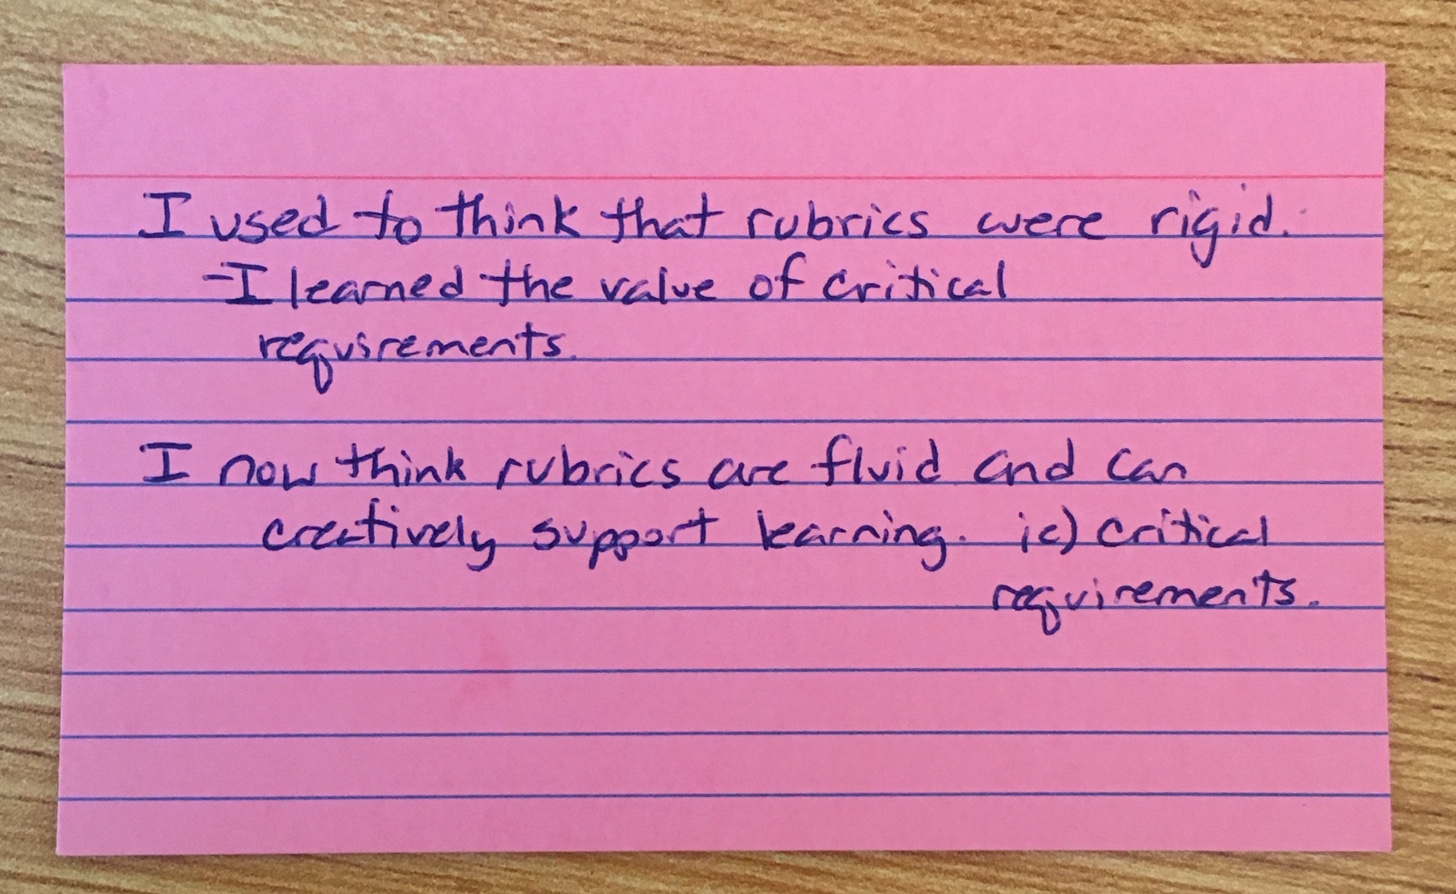 I used to think that rubrics were rigid.
-I learned the value of critical
requirements.
I now think rubrics are fluid and can
creatively support learning. ie) critical
requirements.